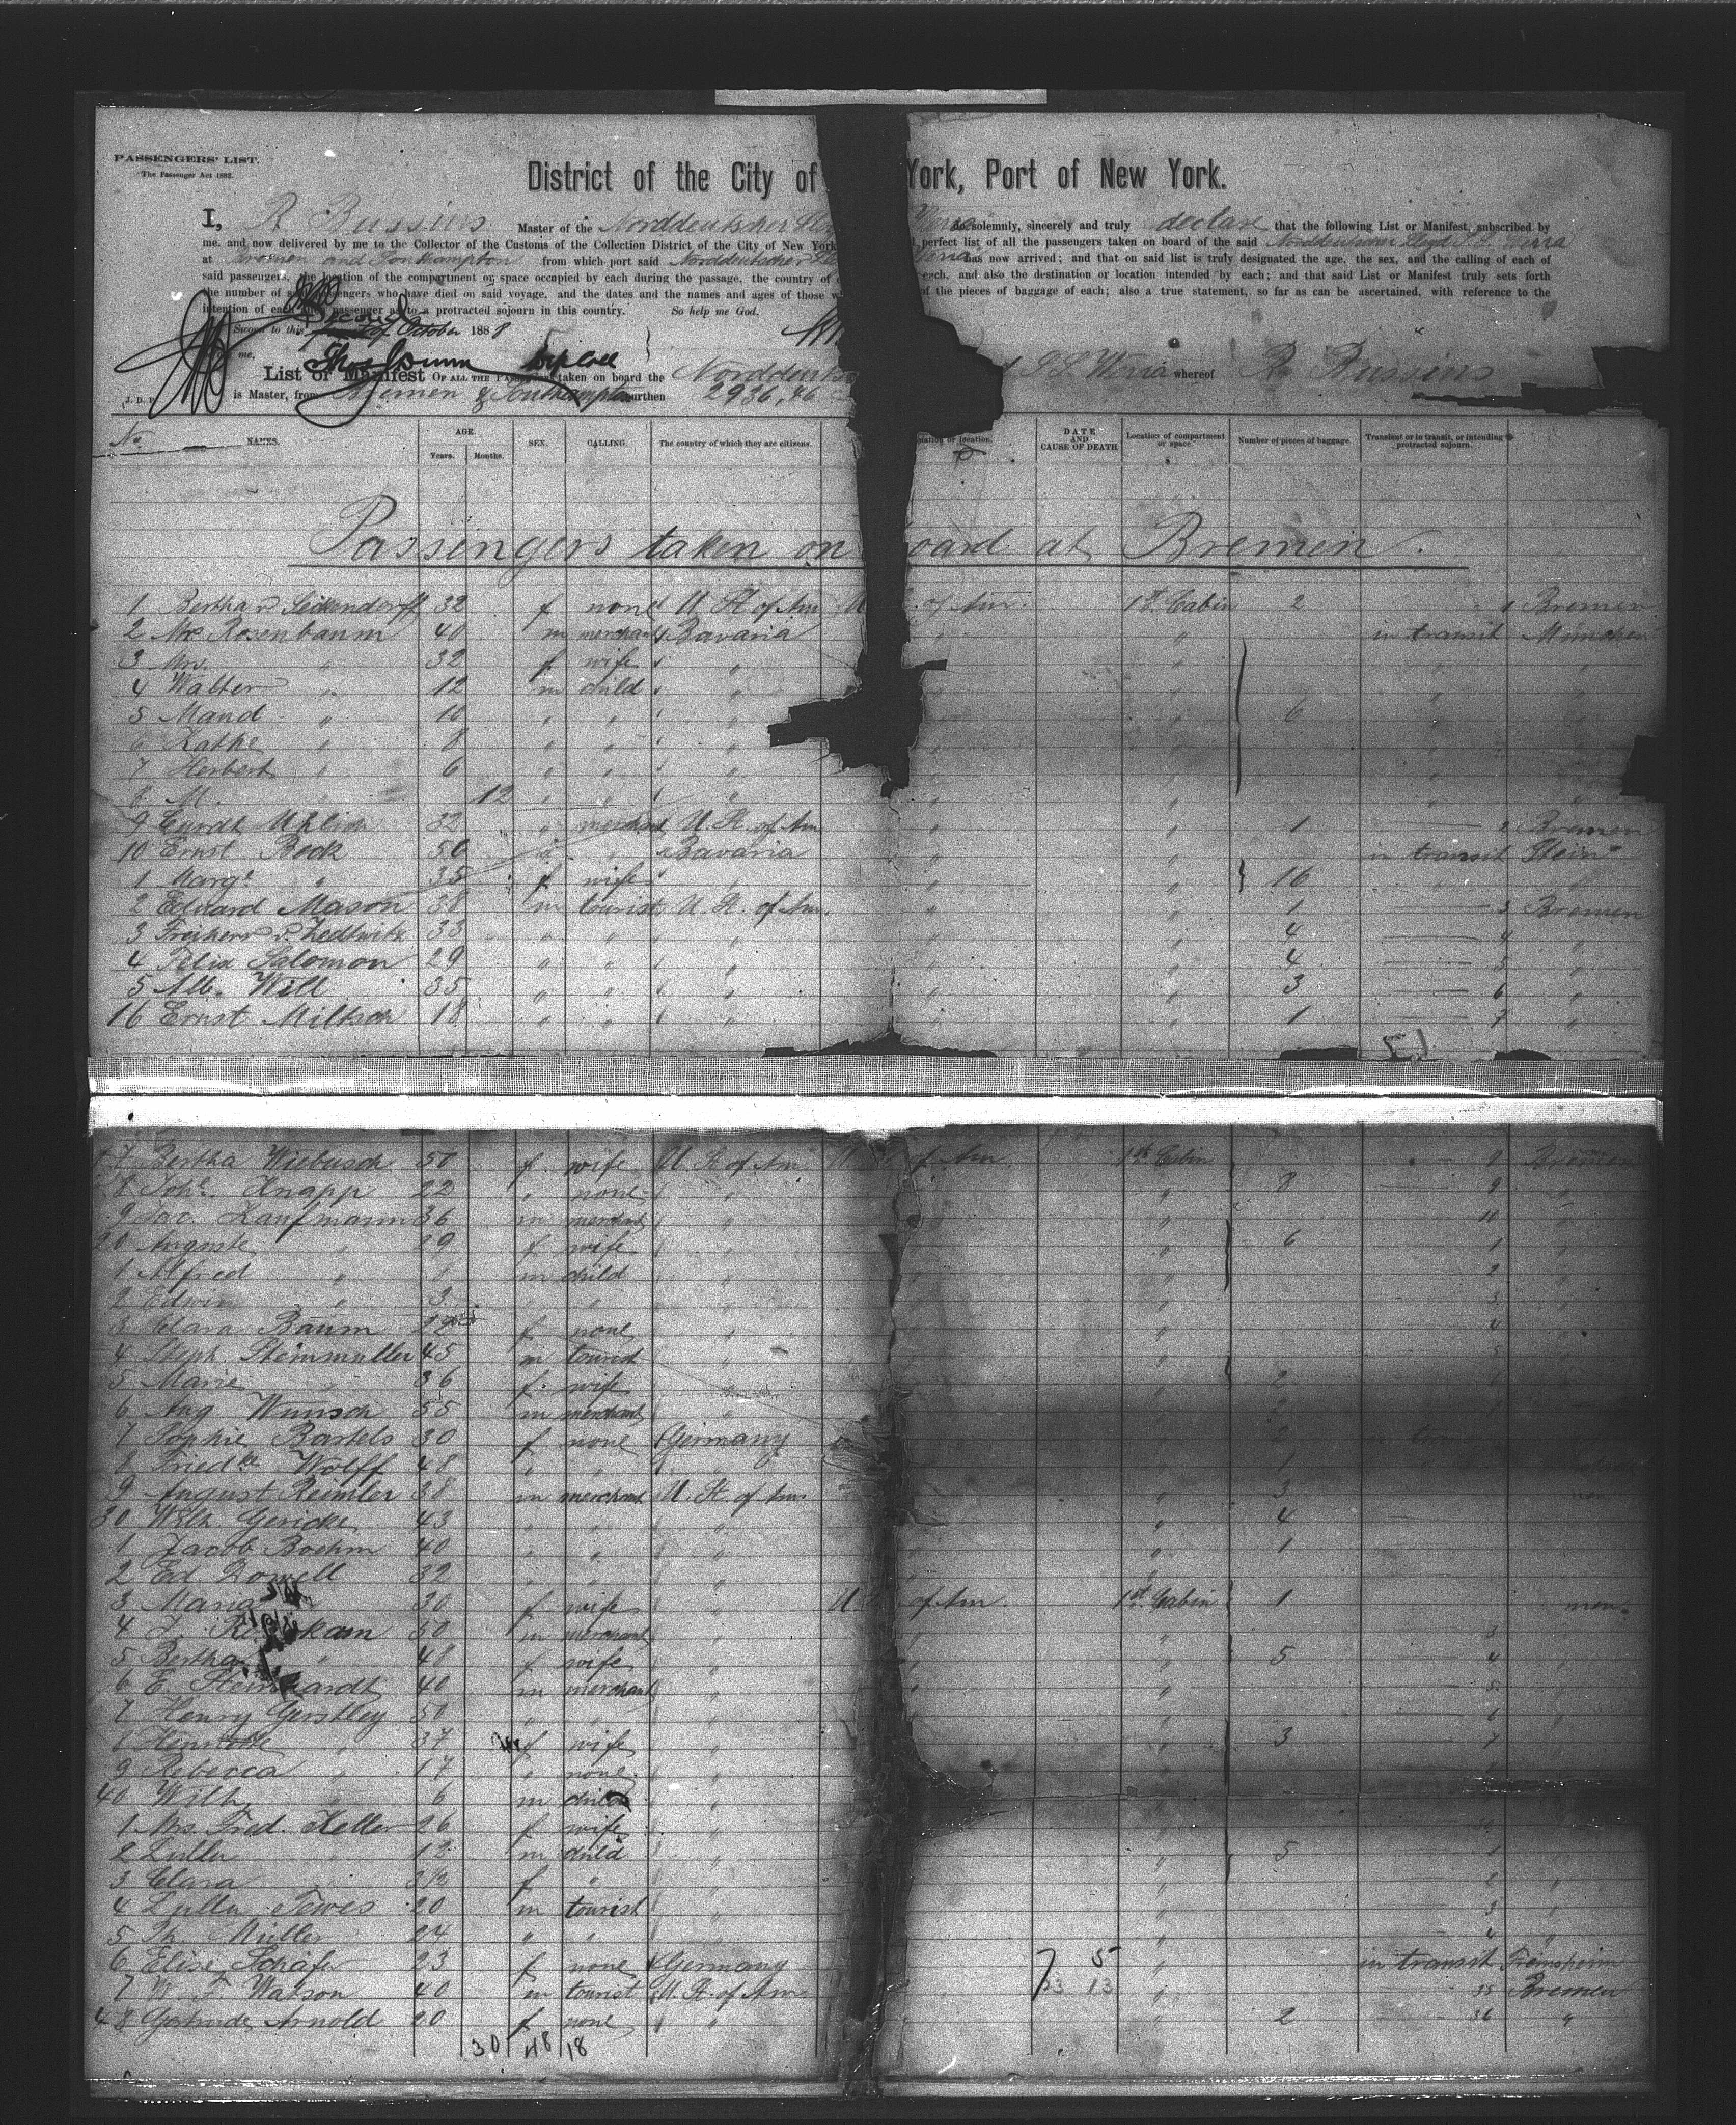 PASSENGERS' LIST.
The Passenger Act 1882.
District of the City of York, Port of New York.
I, R Bussius Master of the Norddeutscher Werra do solemnly, sincerely and truly declare that the following List or Manifest, subscribed by
me, and now delivered by me to the Collector of the Customs of the Collection District of the City of New York perfect list of all the passengers taken on board of the said Norddeutscher Lloyd S.S. Werra
at Bremen and Southampton from which port said Norddeutscher Werra has now arrived; and that on said list is truly designated the age, the sex, and the calling of each of
said passengers, the location of the compartment or space occupied by each during the passage, the country of each, and also the destination or location intended by each; and that said List or Manifest truly sets forth
the number of passengers who have died on said voyage, and the dates and the names and ages of those of the pieces of baggage of each; also a true statement, so far as can be ascertained, with reference to the
intention of each passenger as to a protracted sojourn in this country. So help me God.
Sworn to this Second of October 1888
me,
List or Manifest OF ALL THE PASSENGERS taken on board the S.S. Werra whereof R Bussius
is Master, from Bremen & Southampton burthen 2936,46
No. NAMES. AGE. Years. Months. SEX. CALLING. The country of which they are citizens. location. DATE AND CAUSE OF DEATH. Location of compartment or space. Number of pieces of baggage. Transient or in transit, or intending protracted sojourn.
Passengers taken on oard at Bremen.
1 Bertha v. Seckendorff 32 f none U. St. of Am of Am. 1st Cabin 2 1 Bremen
2 Mr. Rosenbaum 40 m merchant Bavaria " " in transit München
3 Mrs. " 32 f wife " " " " "
4 Walter " 12 m child " " " " "
5 Maud " 10 " " " " " 6 " "
6 Kathe " 8 " " " " " " "
7 Herbert " 6 " " " " " " "
8 M. " 12 " " " " " " "
9 Curdt Uhlich 32 " merchant U. St. of Am " " 1 2 Bremen
10 Ernst Beck 50 " " Bavaria " " in transit Stein
1 Marg. " 35 f wife " " " 10 " "
2 Eduard Mason 38 m tourist U. St. of Am. " " 1 3 Bremen
3 Freiherr v. Zedtwitz 33 " " " " " 4 4 "
4 Felix Salomon 29 " " " " " 4 5 "
5 Alb. Will 35 " " " " " 3 6 "
16 Ernst Miltsch 18 " " " " " 1 7 "
17 Bertha Wiebusch 50 f. wife U. St. of Am. of Am 1st Cabin 8 Bremen
8 Joh. Knapp 22 " none " " " 8 9 "
9 Jac. Kaufmann 36 m merchant " " " 10 "
20 Auguste " 29 f wife " " " 6 1 "
1 Alfred " m child " " " 2 "
2 Edwin " 3 " " " " " 3 "
3 Clara Baum 22 f none " " " 4 "
4 Steph. Steinmuller 45 m tourist " " " 5
5 Marie " 36 f. wife " " 2
6 Aug. Wunsch 55 m merchant " " 2
7 Sophie Bartels 30 f none Germany " 2
8 Friedke Wolff 48 " " " " 1
9 August Reimler 38 m merchant U. St. of Am. " 3
30 Wilh. Gericke 43 " " " " " 4
1 Jacob Boehm 40 " " " " " 1
2 Ed. Dowell 32 " " " " "
3 Maria 30 f wife " U of Am 1st Cabin 1
4 50 m merchant " " " 3
5 Bertha " 48 f wife " " " 5 4 "
6 E. Steinhardt 40 m merchant " " " 5 "
7 Henry Gershley 50 " " " " " 6 "
8 Henriette " 37 f wife " " 3 7 "
9 Rebecca " 17 " none " "
40 Wilh. " 6 m child " "
1 Mrs. Fred. Keller 26 f wife " "
2 Lulla " 12 m child " " 5 1 "
3 Clara " 3½ f " " " 2 "
4 Lulla Tewes 20 m tourist " " 3 "
5 Th. Müller 24 " " " " 4 "
6 Elise Schäfer 23 f none Germany 5 " in transit Freinsheim
7 W. F. Watson 40 m tourist U. St. of Am 13 " 35 Bremen
48 Gertrude Arnold 20 f none " " 2 36 "
30 48 18